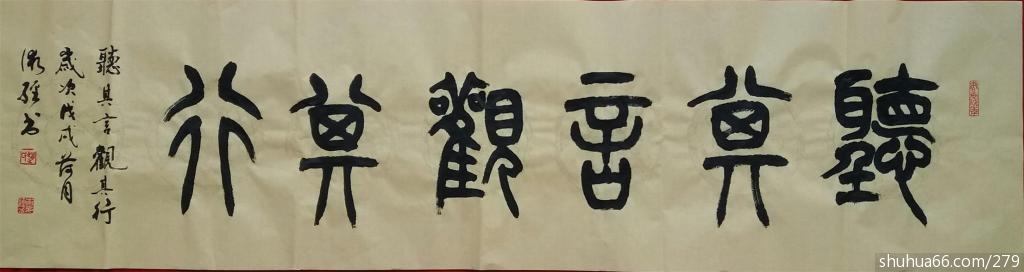 聽其言觀其行
聽其言觀其行
歲次戊戌荷月
shuhua66.com/279